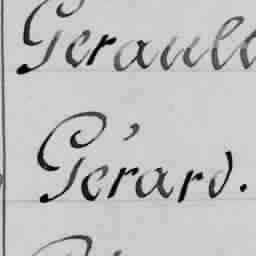 Gerault
Gérard.